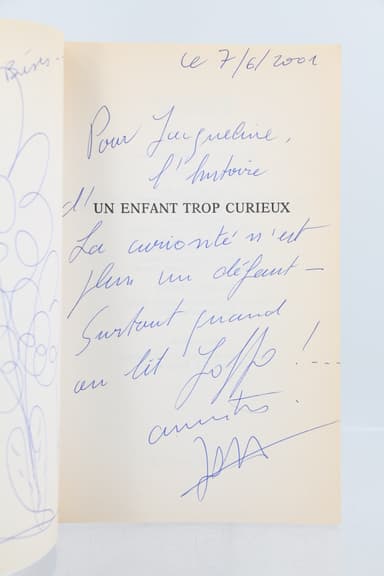 Bises...
Le 7/6/2001
Pour Jacqueline,
l'histoire
d'
UN ENFANT TROP CURIEUX
La curiosité n'est
plus un défaut —
Surtout quand
on lit Joffo !...
amitiés.